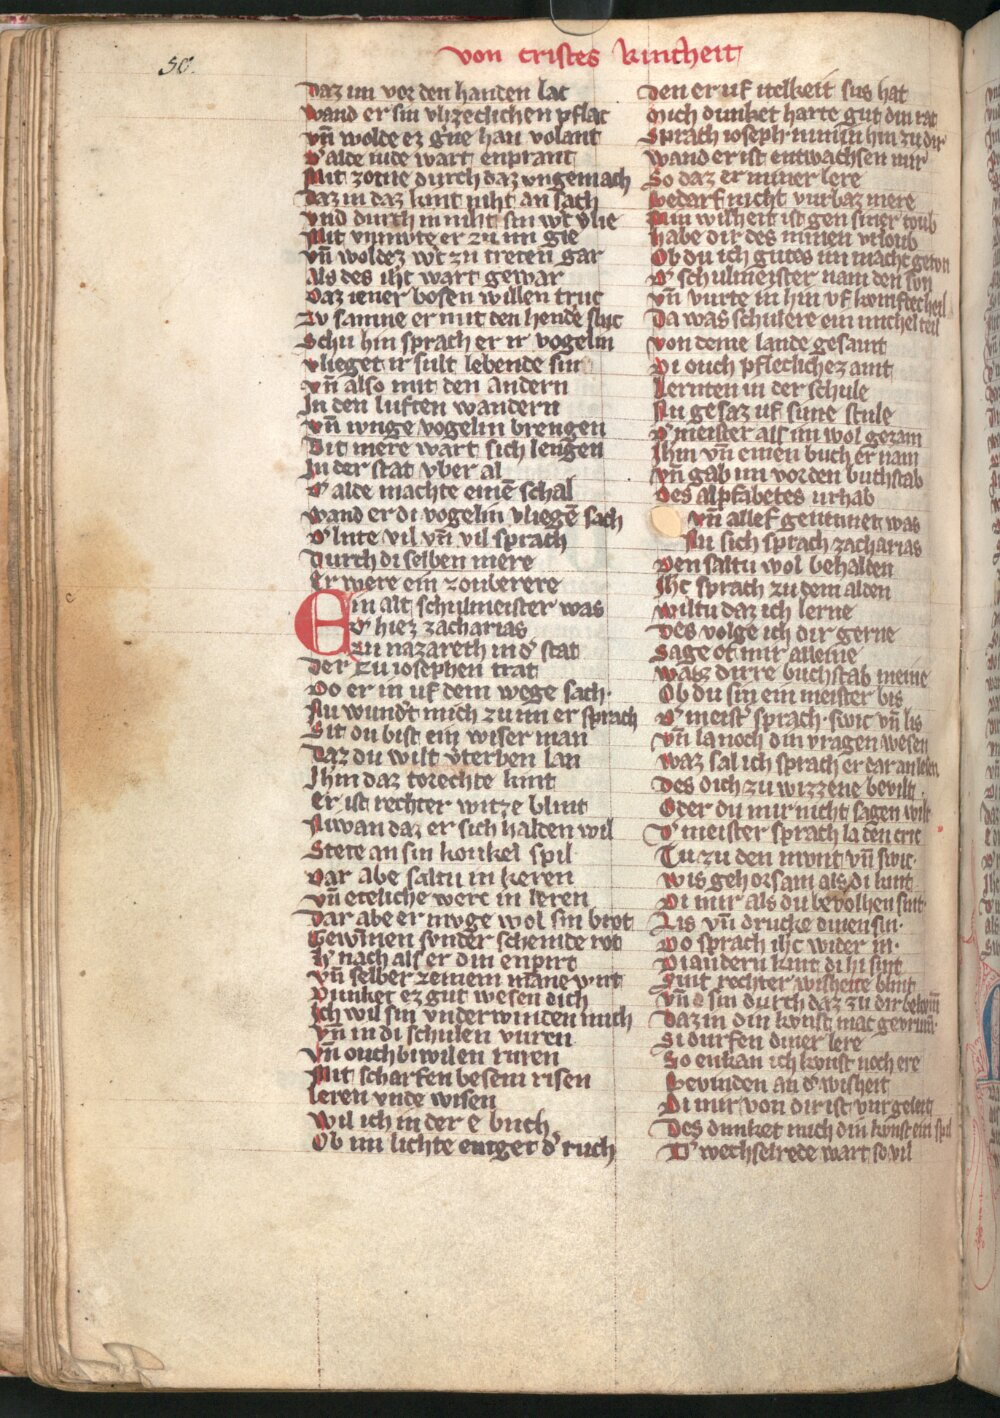 50.
von cristes kintheit
Daz im vor den handen lac
Wand er sin vlizeclichen pflac
vñ wolde ez g'ne han volant
D' alde iude wart enprant
Mit zorne durch daz vngemach
Daz in daz kint niht an sach
vnd durch in niht sin w't vlie
Mit vnmvte er zu im gie
vñ woldez w't zu treten gar
Als des iħc wart gewar
Daz iener bosen willen truc
Zv samne er mit den hende sluc
Schu hin sprach er ir vogelin
vlieget ir sult lebende sin
vñ also mit den andern
In den luften wandern
vñ ivnge vogelin brengen
Dit mere wart sich lengen
In der stat vber al
D' alde machte einē schal
Wand er di vogelin vliegē sach
D' lute vil vñ vil sprach
Durch di selben mere
Er were ein zouberere
Ein alt schulmeister was
D' hiez zacharias
Zu nazareth in d' stat
Der zu iosephen trat
Do er in uf dem wege sach.
Nu wund't mich zu im er sprach
Sit du bist ein wiser man
Daz du wilt v'terben lan
Ihm daz torechte kint
Er ist rechter witze blint
Niwan daz er sich halden wil
Stete an sin konkel spil
Dar abe saltu in keren
vñ eteliche werc in leren
Dar abe er mvge wol sin brot
Gewīnen svnder schemde rot
Hy nach als er din enpirt
vñ selber zeinem māne wirt
Dunket ez gut wesen dich
Ich wil sin vnderwinden mich
vñ in di schulen vuren
vñ ouch biwilen ruren
Mit scharfen besem risen
Leren vnde wisen
Wil ich in der e buch
Ob im lichte entget d' ruch
Den er uf itelkeit sus hat
Mich dunket harte gut din rat
Sprach ioseph nim in hin zu dir
Wand er ist entwachsen mir
So daz er miner lere
Bedarf nicht vurbaz mere
Min wisheit ist gen siner toub
habe dir des minen vrloub
Ob du ich gutes im macht getvn
D' schulmeister nam den svn
vñ vurte in hin vf kvnftec heil
Da was schulere ein michel teil
von deme lande gesamt
Di ouch pfleclichez amt
Lernten in der schule
Nu gesaz uf sime stule
D' meister als im wol gezam
Ihm vñ einen buch er nam
vñ gab im vor den buchstab
Des alphabetes urhab
vñ allef genennet was
Nu sich sprach zacharias
Den saltu wol behalden
Iħc sprach zu dem alden
Wiltu daz ich lerne
Des volge ich dir gerne
Sage ot mir alleine
Waz dirre buchstab meine
Ob du sin ein meister bis
D' meist' sprach. swic vñ lis
vñ la noch din vragen wesen
Waz sal ich sprach er dar an lesen
Des dich zu wizzene bevilt
Oder du mir nicht sagen wilt
D' meister sprach la den cric
Tu zu den mvnt vñ swic.
Wis gehorsam als di kint
Di mir als du bevolhen sint.
Lis vñ drucke dinen sin.
Do sprach iħc wider in.
Di andern kint di hi sint
Sint rechter wisheite blint
Daz in din kvnst mac gevrum
Si durfen diner lere
So enkan ich kvnst noch ere
Bevinden an d' wisheit
Di mir von dir ist vur geleit
Des dunket mich din kvnst ein spil
D' wechselrede wart so vil